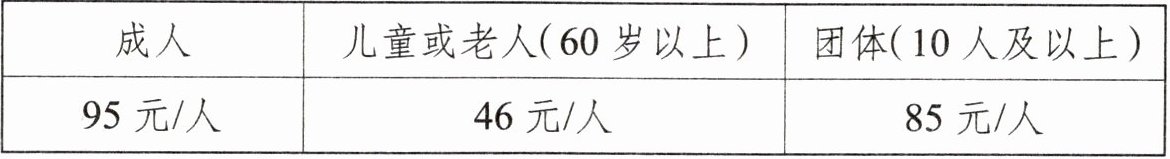 成人 儿童或老人(60 岁以上) 团体(10 人及以上)
95 元/人 46 元/人 85 元/人